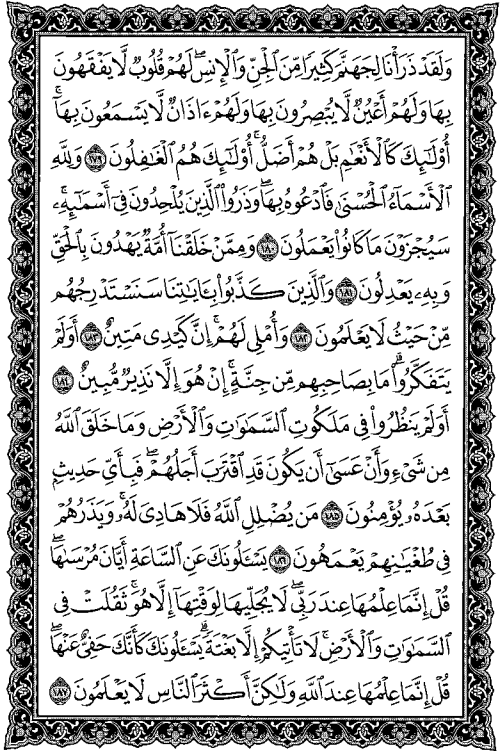 وَلَقَدْ ذَرَأْنَا لِجَهَنَّمَ كَثِيرًا مِّنَ ٱلْجِنِّ وَٱلْإِنسِ ۖ لَهُمْ قُلُوبٌ لَّا يَفْقَهُونَ
بِهَا وَلَهُمْ أَعْيُنٌ لَّا يُبْصِرُونَ بِهَا وَلَهُمْ ءَاذَانٌ لَّا يَسْمَعُونَ بِهَآ ۚ
أُو۟لَـٰٓئِكَ كَٱلْأَنْعَـٰمِ بَلْ هُمْ أَضَلُّ ۚ أُو۟لَـٰٓئِكَ هُمُ ٱلْغَـٰفِلُونَ ١٧٩ وَلِلَّهِ
ٱلْأَسْمَآءُ ٱلْحُسْنَىٰ فَٱدْعُوهُ بِهَا ۖ وَذَرُوا۟ ٱلَّذِينَ يُلْحِدُونَ فِىٓ أَسْمَـٰٓئِهِۦ ۚ
سَيُجْزَوْنَ مَا كَانُوا۟ يَعْمَلُونَ ١٨٠ وَمِمَّنْ خَلَقْنَآ أُمَّةٌ يَهْدُونَ بِٱلْحَقِّ
وَبِهِۦ يَعْدِلُونَ ١٨١ وَٱلَّذِينَ كَذَّبُوا۟ بِـَٔايَـٰتِنَا سَنَسْتَدْرِجُهُم
مِّنْ حَيْثُ لَا يَعْلَمُونَ ١٨٢ وَأُمْلِى لَهُمْ ۚ إِنَّ كَيْدِى مَتِينٌ ١٨٣ أَوَلَمْ
يَتَفَكَّرُوا۟ ۗ مَا بِصَاحِبِهِم مِّن جِنَّةٍ ۚ إِنْ هُوَ إِلَّا نَذِيرٌ مُّبِينٌ ١٨٤
أَوَلَمْ يَنظُرُوا۟ فِى مَلَكُوتِ ٱلسَّمَـٰوَٰتِ وَٱلْأَرْضِ وَمَا خَلَقَ ٱللَّهُ
مِن شَىْءٍ وَأَنْ عَسَىٰٓ أَن يَكُونَ قَدِ ٱقْتَرَبَ أَجَلُهُمْ ۖ فَبِأَىِّ حَدِيثٍۭ
بَعْدَهُۥ يُؤْمِنُونَ ١٨٥ مَن يُضْلِلِ ٱللَّهُ فَلَا هَادِىَ لَهُۥ ۚ وَيَذَرُهُمْ
فِى طُغْيَـٰنِهِمْ يَعْمَهُونَ ١٨٦ يَسْـَٔلُونَكَ عَنِ ٱلسَّاعَةِ أَيَّانَ مُرْسَىٰهَا ۖ
قُلْ إِنَّمَا عِلْمُهَا عِندَ رَبِّى ۖ لَا يُجَلِّيهَا لِوَقْتِهَآ إِلَّا هُوَ ۚ ثَقُلَتْ فِى
ٱلسَّمَـٰوَٰتِ وَٱلْأَرْضِ ۚ لَا تَأْتِيكُمْ إِلَّا بَغْتَةً ۗ يَسْـَٔلُونَكَ كَأَنَّكَ حَفِىٌّ عَنْهَا ۖ
قُلْ إِنَّمَا عِلْمُهَا عِندَ ٱللَّهِ وَلَـٰكِنَّ أَكْثَرَ ٱلنَّاسِ لَا يَعْلَمُونَ ١٨٧